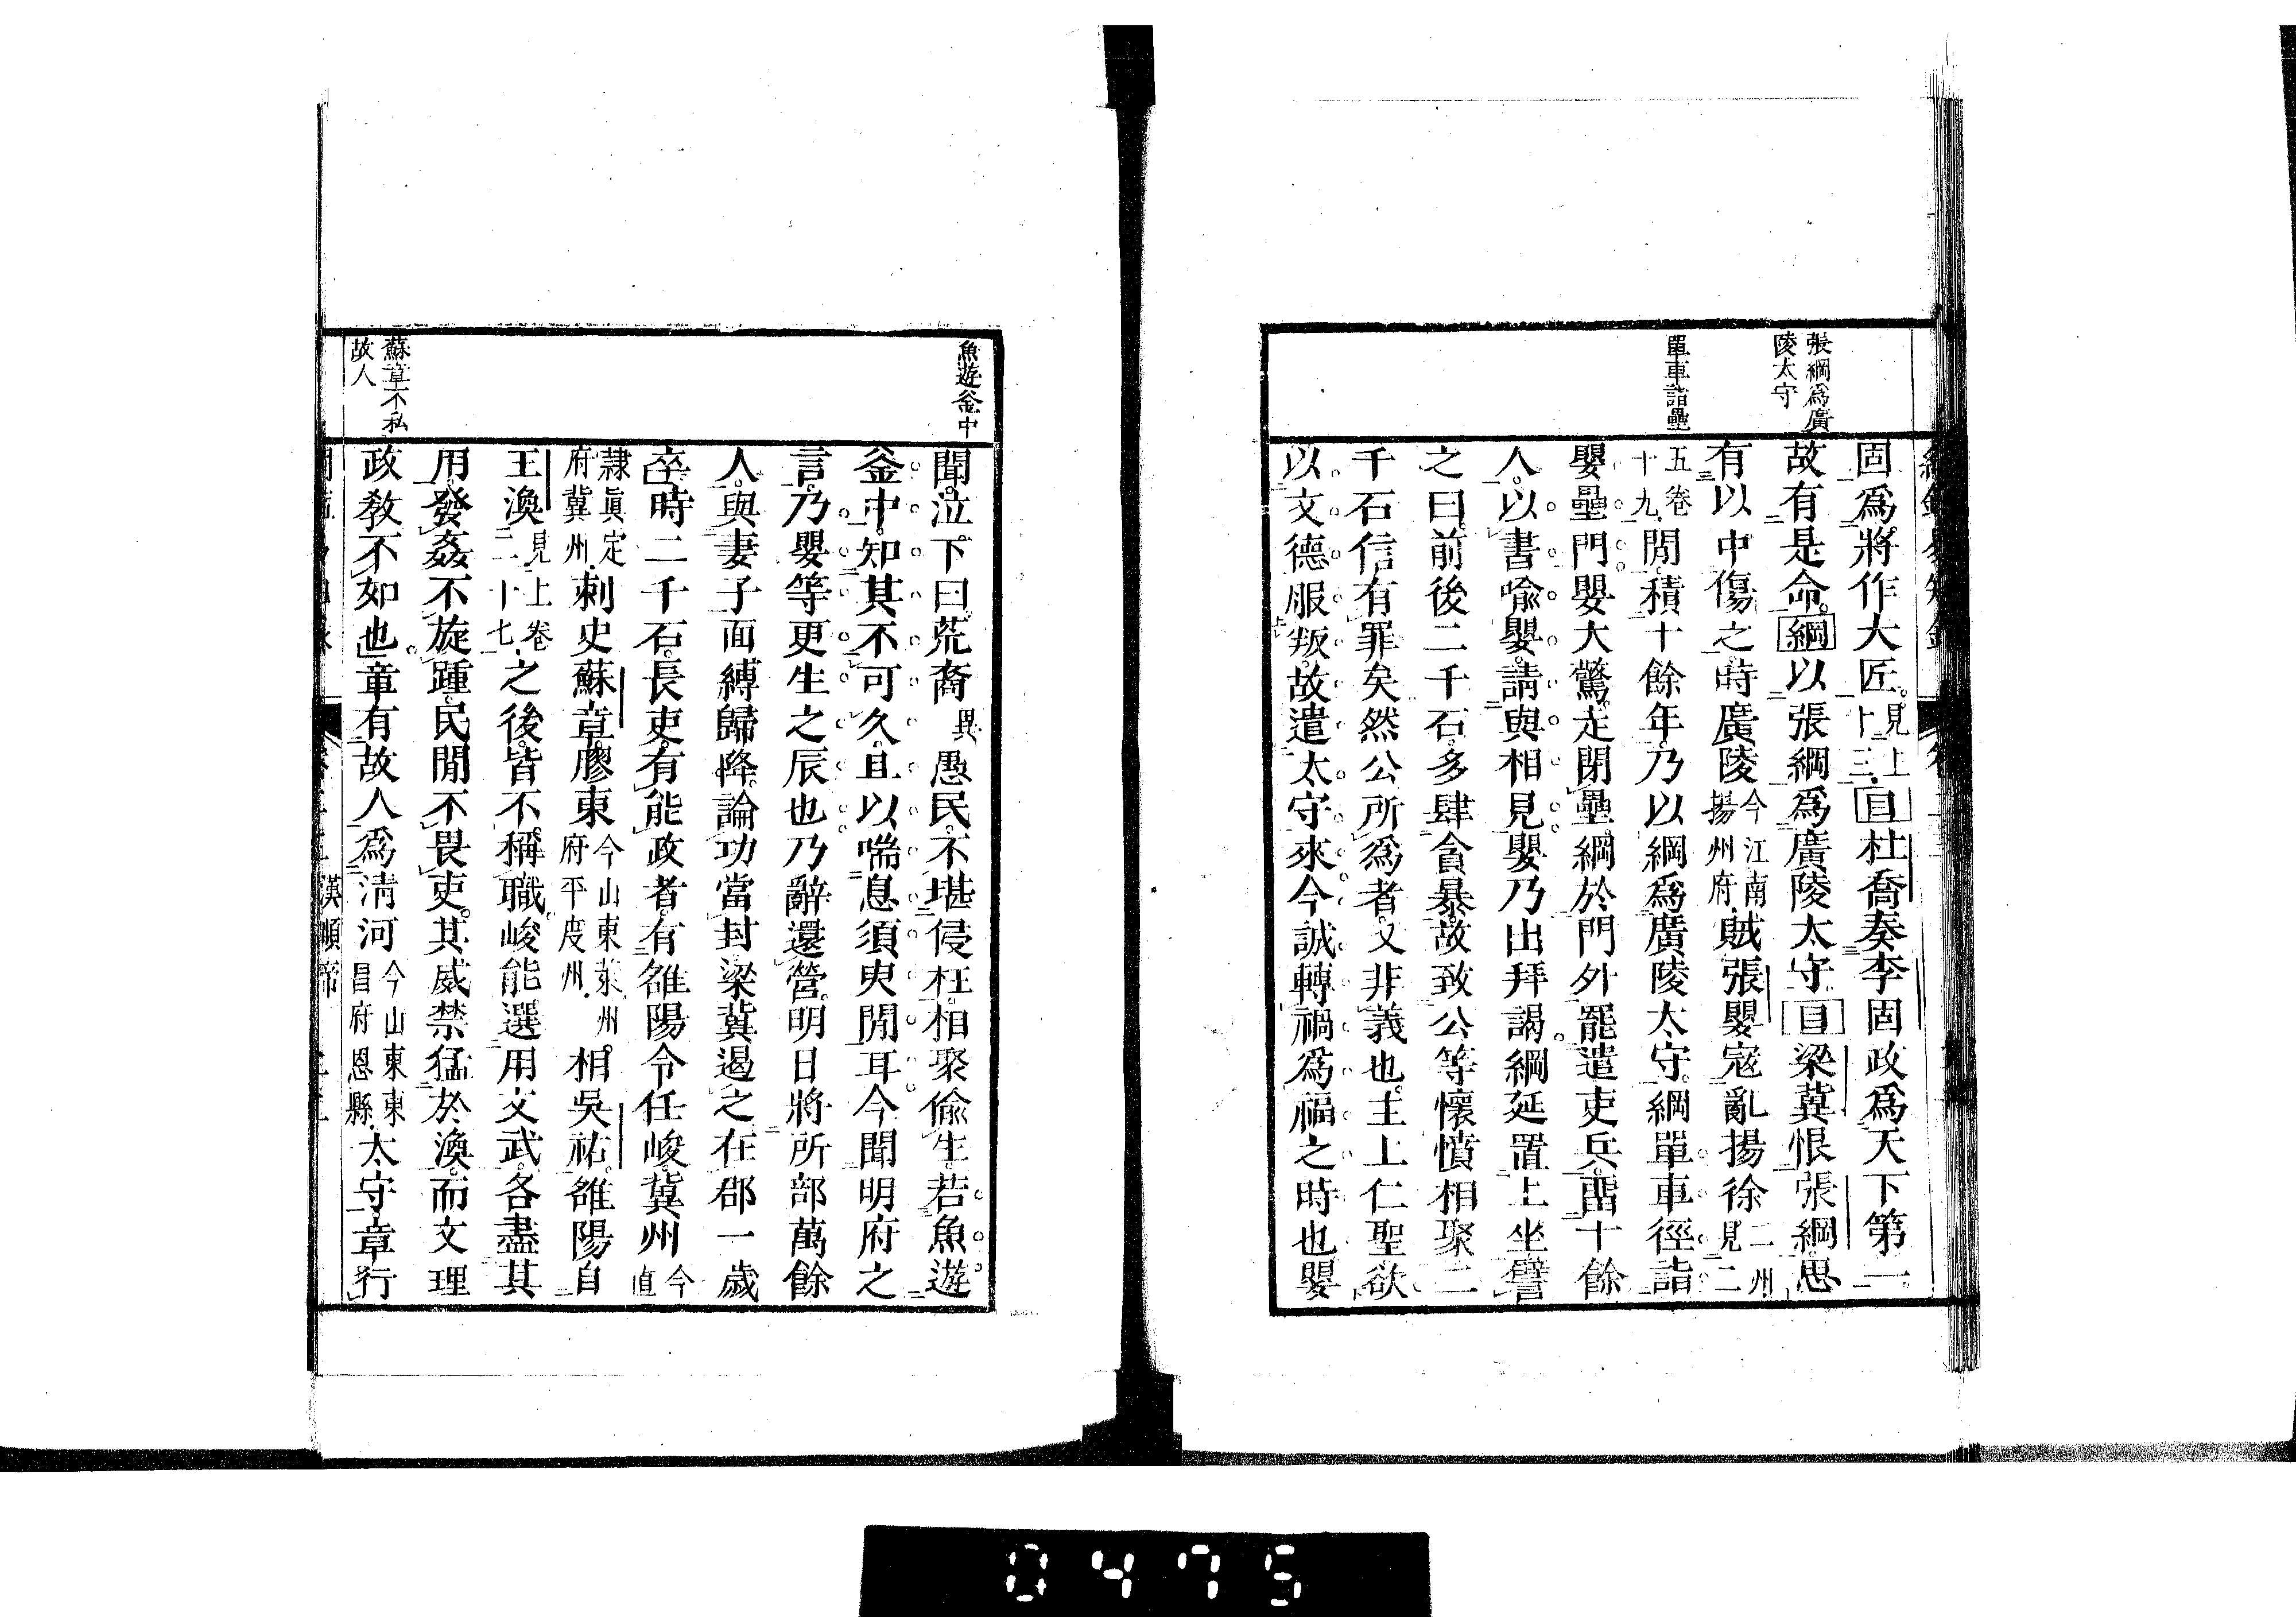 張綱爲廣
陵太守
單車詣壘
固爲將作大匠見上十三目杜喬奏李固政爲天下第一
故有是命綱以張綱爲廣陵太守目梁冀恨張綱思
有以中傷之時廣陵今江南揚州府賊張嬰寇亂揚徐二州見二
五卷十九閒積十餘年乃以綱爲廣陵太守綱單車徑詣
嬰壘門嬰大驚走閉壘綱於門外罷遣吏兵畱十餘
人以書喻嬰請與相見嬰乃出拜謁綱延置上坐譬
之曰前後二千石多肆貪暴故致公等懷憤相聚二
千石信有罪矣然公所爲者又非義也主上仁聖欲
以文德服叛故遣太守來今誠轉禍爲福之時也嬰
魚遊釜中
蘇章不私
故人
聞泣下曰荒裔異愚民不堪侵枉相聚偷生若魚遊
釜中知其不可久且以喘息須臾閒耳今聞明府之
言乃嬰等更生之辰也乃辭還營明日將所部萬餘
人與妻子面縛歸降論功當封梁冀遏之在郡一歲
卒時二千石長吏有能政者有雒陽令任峻冀州今直
隸眞定府冀州刺史蘇章膠東今山東萊州府平度州相吳祐雒陽自
王渙見上卷二十七之後皆不稱職峻能選用文武各盡其
用發姦不旋踵民閒不畏吏其威禁猛於渙而文理
政敎不如也章有故人爲淸河今山東東昌府恩縣太守章行
漢順帝
0475